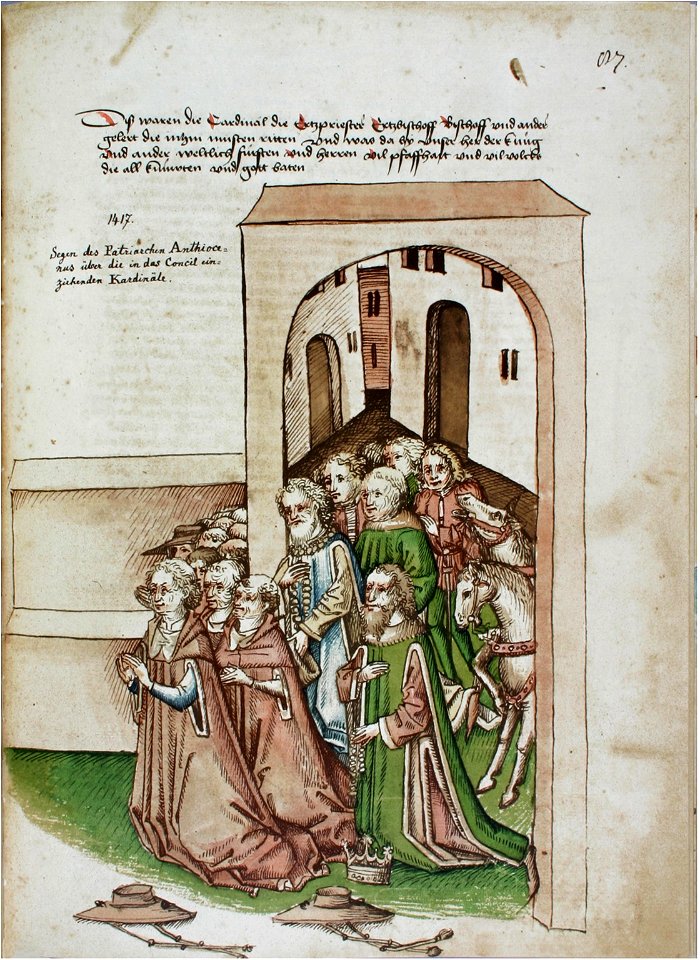 87.
Das waren die Cardinal die Ertzpriester Ertzbischoff Bischoff vnd ander
gelert die inhin musten ritten Vnd was da by vnser her der kung
vnd ander weltlich fursten vnd herren vil pfaffhait vnd vil volcks
die all knuwten vnd gott baten
1417.
Segen des Patriarchen Anthioce=
nus über die in das Concil ein=
ziehenden Kardinäle.